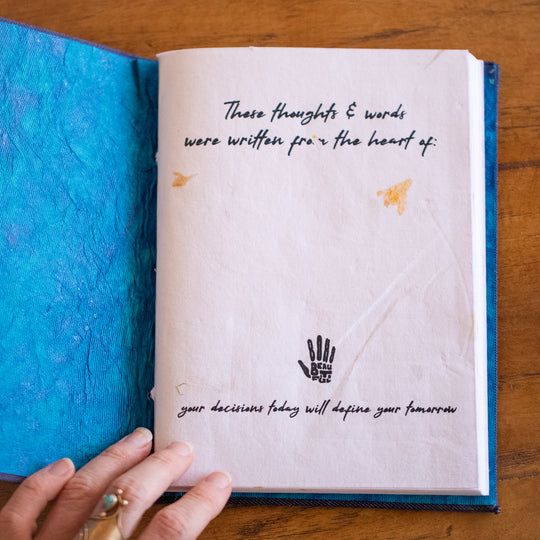 These thoughts & words
were written from the heart of:
BEAU
TI
FUL
your decisions today will define your tomorrow